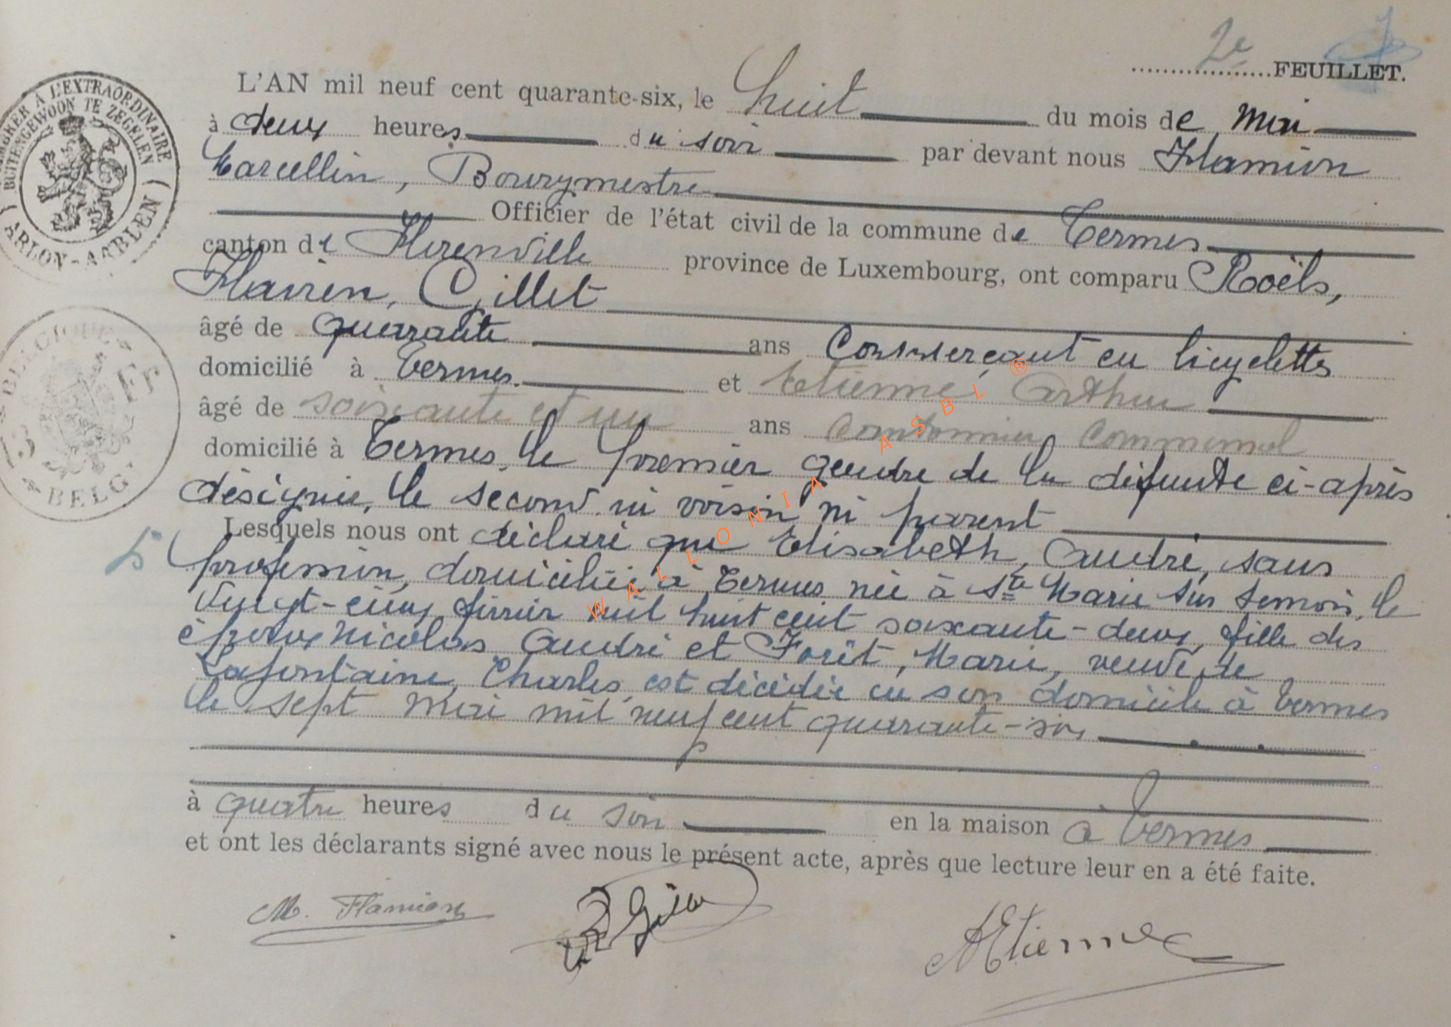 2e FEUILLET.
L'AN mil neuf cent quarante-six, le huit du mois de Mai
à deux heures du soir par devant nous Flamion
Marcellin, Bourgmestre
Officier de l'état civil de la commune de Termes
canton de Florenville province de Luxembourg, ont comparu Roëls,
Flavien, Gillet
âgé de quarante ans Commerçant en bicyclettes
domicilié à Termes. et Etienne, Arthur
âgé de soixante et un ans Cantonnier Communal
domicilié à Termes, le premier gendre de la défunte ci-après
désignée, le second ni voisin ni parent
5 Lesquels nous ont déclaré que Elisabeth, André, sans
profession, domiciliée à Termes née à Ste Marie sur Semois, le
vingt-cinq février mil huit cent soixante-deux, fille des
époux Nicolas André et Forêt, Marie, veuve de
Lafontaine, Charles, est décédée en son domicile à Termes
le sept Mai mil neuf cent quarante-six
à quatre heures du soir en la maison à Termes
et ont les déclarants signé avec nous le présent acte, après que lecture leur en a été faite.
M. Flamion Gillet AEtienne
A L'EXTRAORDINAIRE
BUITENGEWOON TE ZEGELEN
ARLON-AARLEN
BELGIQUE
3 Fr
BELG
WALLONIA ASBL ®